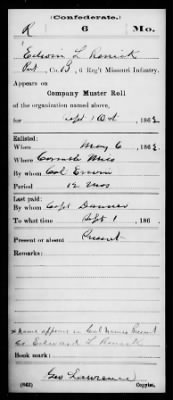 (Confederate.)
R 6 Mo.
Edwin L Renick
Pvt, Co. B, 6 Reg't Missouri Infantry.
Appears on
Company Muster Roll
of the organization named above,
for Sept & Oct, 1862
Enlisted:
When May 6, 1862
Where Corinth Miss
By whom Col Erwin
Period 12 mos
Last paid:
By whom Capt
To what time Sept 1, 186
Present or absent Present
Remarks:
* name appears in
as Edward L
Book mark:
Geo Lawrence
(642) Copyist.